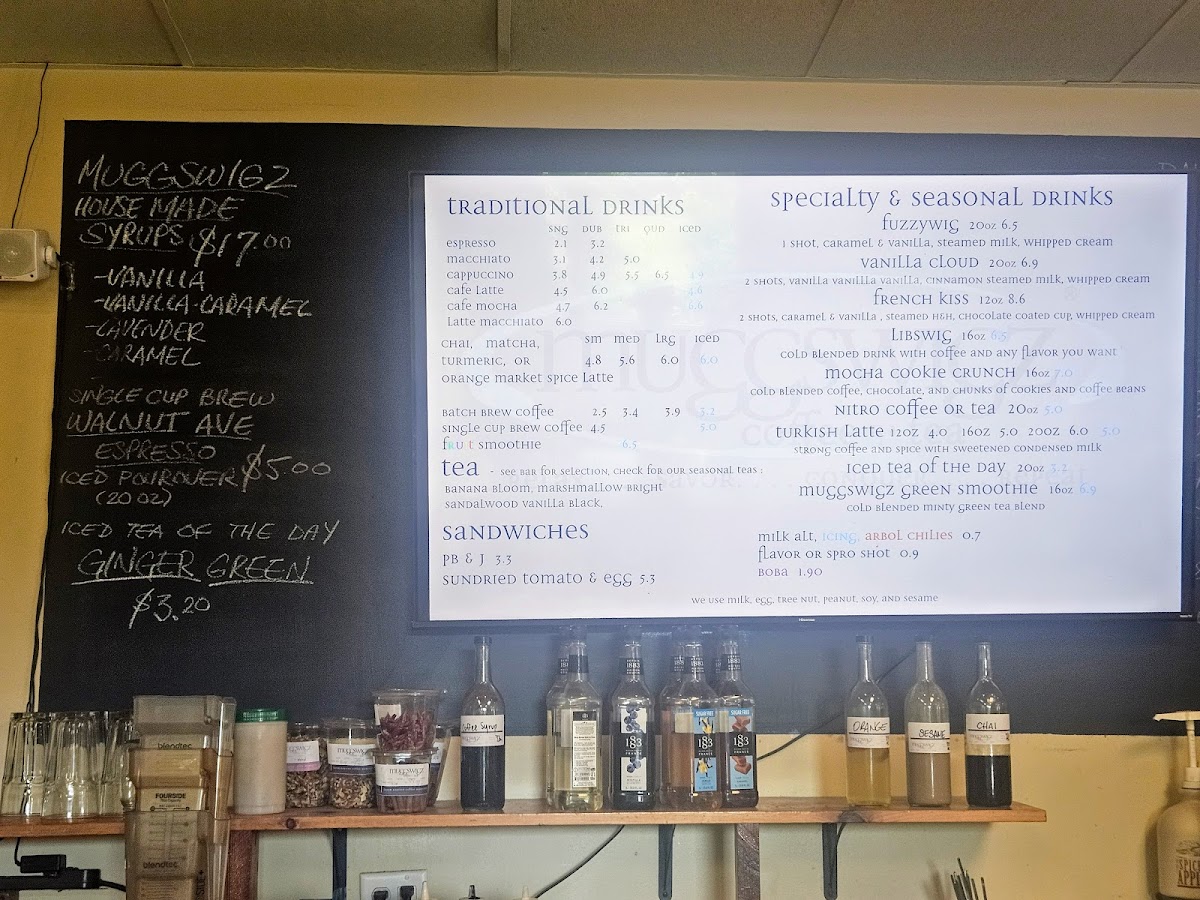 MUGGSWIGZ
HOUSE MADE
SYRUPS $17.00
-VANILLA
-VANILLA-CARAMEL
-LAVENDER
-CARAMEL
SINGLE CUP BREW
WALNUT AVE
ESPRESSO
ICED POUROVER $5.00
(20 OZ)
ICED TEA OF THE DAY
GINGER GREEN
$3.20
traditional drinks
sng dub tri qud iced
espresso 2.1 3.2
macchiato 3.1 4.2 5.0
cappuccino 3.8 4.9 5.5 6.5 4.9
cafe Latte 4.5 6.0 4.6
cafe mocha 4.7 6.2 6.6
Latte macchiato 6.0
chai, matcha, sm med Lrg iced
turmeric, or 4.8 5.6 6.0 6.0
orange market spice Latte
batch brew coffee 2.5 3.4 3.9 3.2
single cup brew coffee 4.5 5.0
fruit smoothie 6.5
tea - see bar for selection, check for our seasonal teas :
banana bloom, marshmallow bright
sandalwood vanilla black,
sandwiches
PB & J 3.3
sundried tomato & egg 5.3
specialty & seasonal drinks
fuzzywig 20oz 6.5
1 shot, caramel & vanilla, steamed milk, whipped cream
vanilla cloud 20oz 6.9
2 shots, vanilla vanillla vanilla, cinnamon steamed milk, whipped cream
french kiss 12oz 8.6
2 shots, caramel & vanilla , steamed h&h, chocolate coated cup, whipped cream
Libswig 16oz 6.5
cold blended drink with coffee and any flavor you want
mocha cookie crunch 16oz 7.0
cold blended coffee, chocolate, and chunks of cookies and coffee beans
nitro coffee or tea 20oz 5.0
turkish Latte 12oz 4.0 16oz 5.0 20oz 6.0 5.0
strong coffee and spice with sweetened condensed milk
iced tea of the day 20oz 3.2
muggswigz green smoothie 16oz 6.9
cold blended minty green tea blend
milk alt, icing, arbol chilies 0.7
flavor or spro shot 0.9
boba 1.90
we use milk, egg, tree nut, peanut, soy, and sesame
Coffee Syrup
1883
1883
1883
SUGAR FREE
SUGAR FREE
ORANGE
SESAME
CHAI
blendtec
FOURSIDE
blendtec
muggswigz
muggswigz
muggswigz